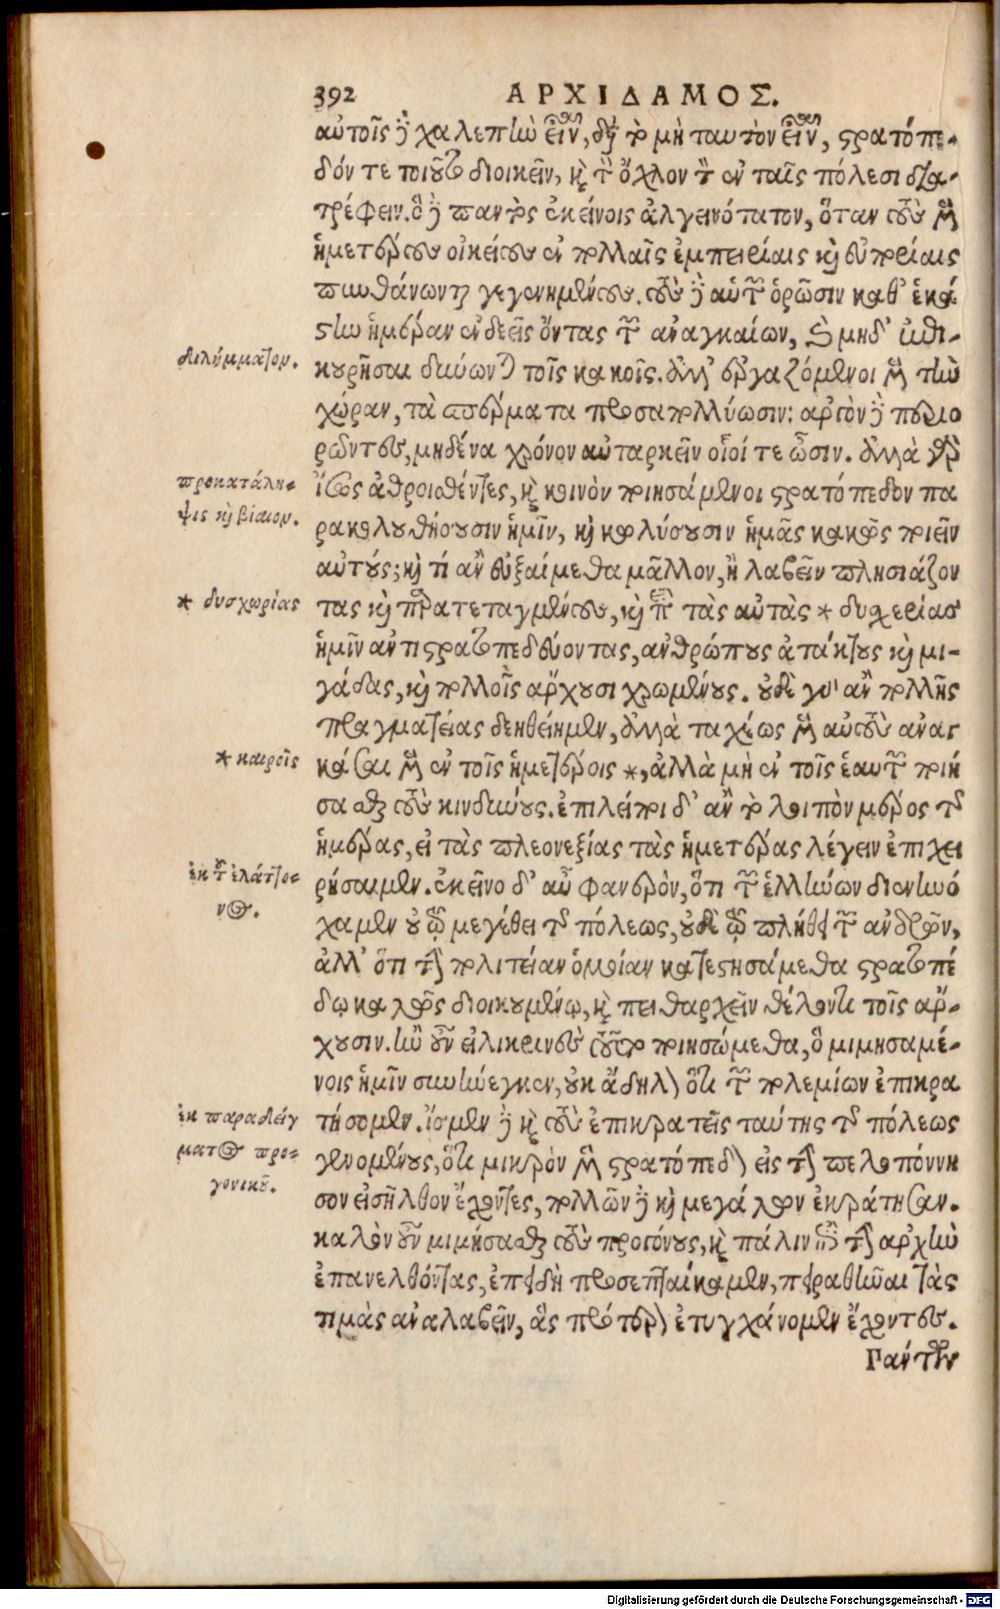 392 ΑΡΧΙΔΑΜΟΣ.
αὐτοῖς γὰρ χαλεπὸν εἶναι, διὰ τὸ μὴ ταυτὸν εἶναι, στρατόπε-
δόν τε τοιοῦτο διοικεῖν, καὶ τὸν ὄχλον τὸν ἐν ταῖς πόλεσι δια-
τρέφειν. ὃ δὲ πάντων ἐκείνοις ἀλγεινότατον, ὅταν τοὺς μὲν
ἡμετέρους οἰκείους ἐν πολλαῖς ἐμπειρίαις καὶ εὐπορίαις
πυνθάνωνται γεγενημένους. τοὺς δὲ αὑτῶν ὁρῶσιν καθ' ἑκά
στην ἡμέραν ἐνδεεῖς ὄντας τῶν ἀναγκαίων, καὶ μηδ' ἐπι-
διλήμματον.
κουρῆσαι δύωνται τοῖς κακοῖς. ἀλλ' ἐργαζόμενοι μὲν τὴν
χώραν, τὰ σπέρματα προσαπολλύωσιν: ἀργὸν δὲ περιο
ρῶντες, μηδένα χρόνον αὐταρκεῖν οἷοί τε ὦσιν. ἀλλὰ γὰρ
προκατάλη-
ψις καὶ βίαιον.
ἴσως ἀθροισθέντες, καὶ κοινὸν ποιησάμενοι στρατόπεδον πα
ρακολουθήσουσιν ἡμῖν, καὶ κωλύσουσιν ἡμᾶς κακῶς ποιεῖν
αὐτούς; καὶ τί ἂν εὐξαίμεθα μᾶλλον, ἢ λαβεῖν πλησιάζον
* δυσχωρίας
τας καὶ παρατεταγμένους, καὶ περὶ τὰς αὐτὰς * δυσχερείας
ἡμῖν ἀντιστρατοπεδεύοντας, ἀνθρώπους ἀτάκτους καὶ μι-
γάδας, καὶ πολλοῖς ἄρχουσι χρωμένους. οὐδὲ γὰρ ἂν πολλῆς
πραγματείας δεηθείημεν, ἀλλὰ ταχέως μὲν αὐτοὺς ἀναγ
* καιροῖς
κάσαι μὲν ἐν τοῖς ἡμετέροις *, ἀλλὰ μὴ ἐν τοῖς ἑαυτῶν ποιή
σασθαι τοὺς κινδύνους. ἐπιλείποι δ' ἂν τὸ λοιπὸν μέρος τῆς
ἡμέρας, εἰ τὰς πλεονεξίας τὰς ἡμετέρας λέγειν ἐπιχει
ἐκ τοῦ ἐλάττο-
νος.
ρήσαιμεν. ἐκεῖνο δ' οὖν φανερόν, ὅτι τῶν ἑλλήνων διενηνό
χαμεν οὐ τῷ μεγέθει τῆς πόλεως, οὐδὲ τῷ πλήθει τῶν ἀνδρῶν,
ἀλλ' ὅτι τὴν πολιτείαν ὁμοίαν κατεστησάμεθα στρατοπέ
δῳ καλῶς διοικουμένῳ, καὶ πειθαρχεῖν θέλοντι τοῖς ἄρ-
χουσιν. ἢν οὖν εἰλικρινὲς τοῦτο ποιησώμεθα, ὃ μιμησαμέ-
νοις ἡμῖν συνήνεγκεν, οὐκ ἄδηλον ὅτι τῶν πολεμίων ἐπικρα
ἐκ παραδείγ
ματος προ-
γονικοῦ.
τήσομεν. ἴσμεν δὲ καὶ τοὺς ἐπικρατεῖς ταύτης τῆς πόλεως
γενομένους, ὅτι μικρὸν μὲν στρατόπεδον εἰς τὴν πελοπόννη
σον εἰσῆλθον ἔχοντες, πολλῶν δὲ καὶ μεγάλων ἐκράτησαν.
καλὸν οὖν μιμήσασθαι τοὺς προγόνους, καὶ πάλιν ἐπὶ τὴν ἀρχὴν
ἐπανελθόντας, ἐπειδὴ προσεπταίκαμεν, πειραθῆναι τὰς
τιμὰς ἀναλαβεῖν, ἃς πρότερον ἐτυγχάνομεν ἔχοντες.
Πάντων
Digitalisierung gefördert durch die Deutsche Forschungsgemeinschaft - DFG